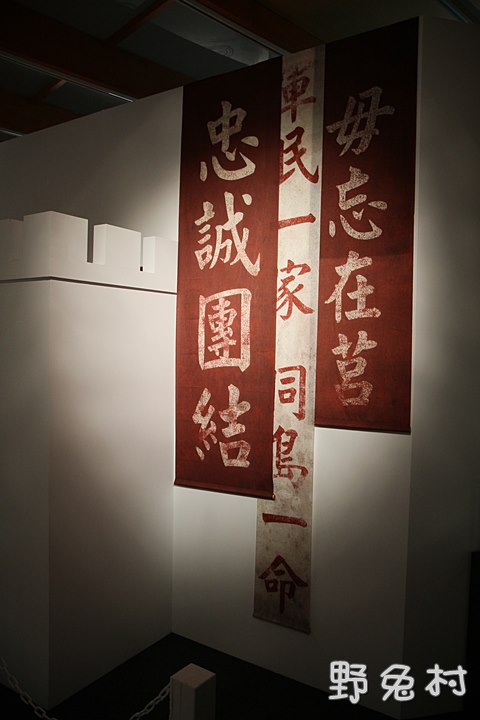 毋忘在莒
軍民一家 同島一命
忠誠團結
野兔村